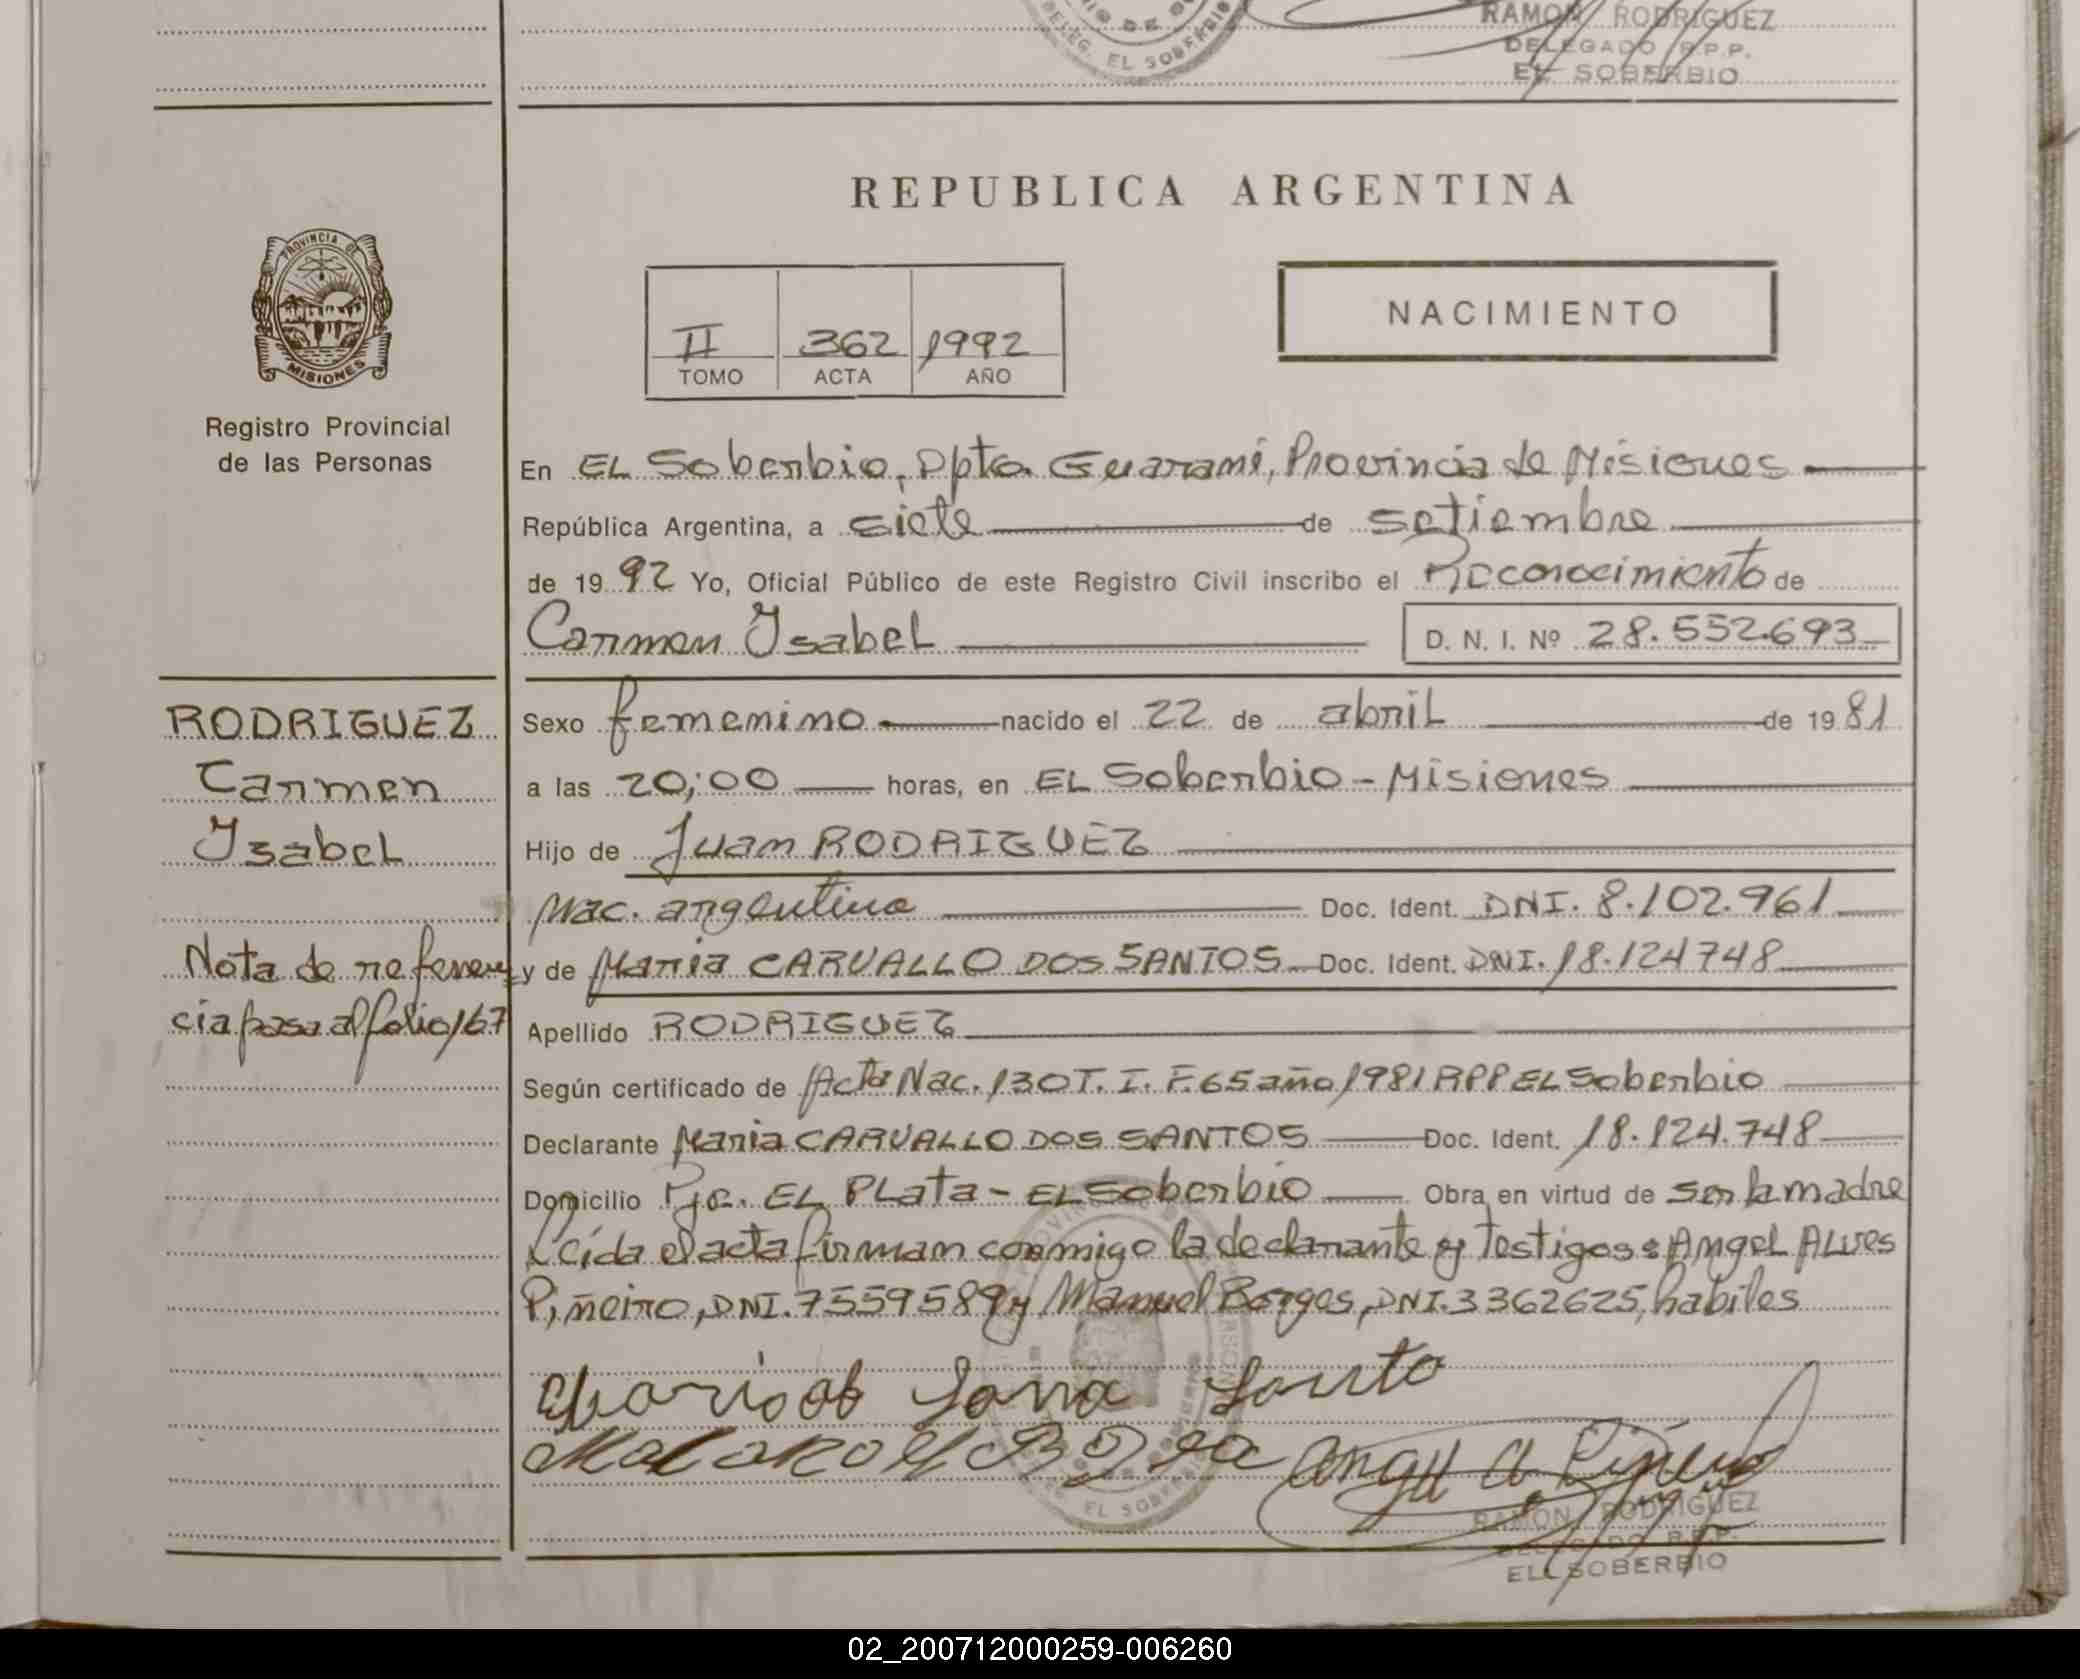 RAMON RODRIGUEZ
DELEGADO R.P.P.
EL SOBERBIO
DELEG. EL SOBERBIO
REPUBLICA ARGENTINA
PROVINCIA DE
MISIONES
Registro Provincial
de las Personas
II 362 1992
TOMO ACTA AÑO
NACIMIENTO
En EL Soberbio, Dpto. Guaraní, Provincia de Misiones
República Argentina, a siete de setiembre
de 1992 Yo, Oficial Público de este Registro Civil inscribo el Reconocimiento de
Carmen Ysabel D. N. I. Nº 28.552.693
RODRIGUEZ
Carmen
Ysabel
Nota de referen-
cia pasa al folio 167
Sexo femenino nacido el 22 de abril de 1981
a las 20;00 horas, en EL Soberbio - Misiones
Hijo de Juan RODRIGUEZ
Nac. argentina Doc. Ident. DNI. 8.102.961
y de Maria CARVALLO DOS SANTOS Doc. Ident. DNI. 18.124748
Apellido RODRIGUEZ
Según certificado de Acta Nac. 130 T. I. F. 65 año 1981 RPP EL Soberbio
Declarante Maria CARVALLO DOS SANTOS Doc. Ident. 18.124.748
Domicilio Pje. EL PLata - EL Soberbio Obra en virtud de ser la madre
Leída el acta firman conmigo la declarante y testigos: Angel ALves
Piñeiro, DNI. 7559589 y Manuel Borges, DNI. 3362625, habiles
Angel A Piñeiro
DELEG. EL SOBERBIO
RAMON RODRIGUEZ
DELEGADO R.P.P.
EL SOBERBIO
02_200712000259-006260